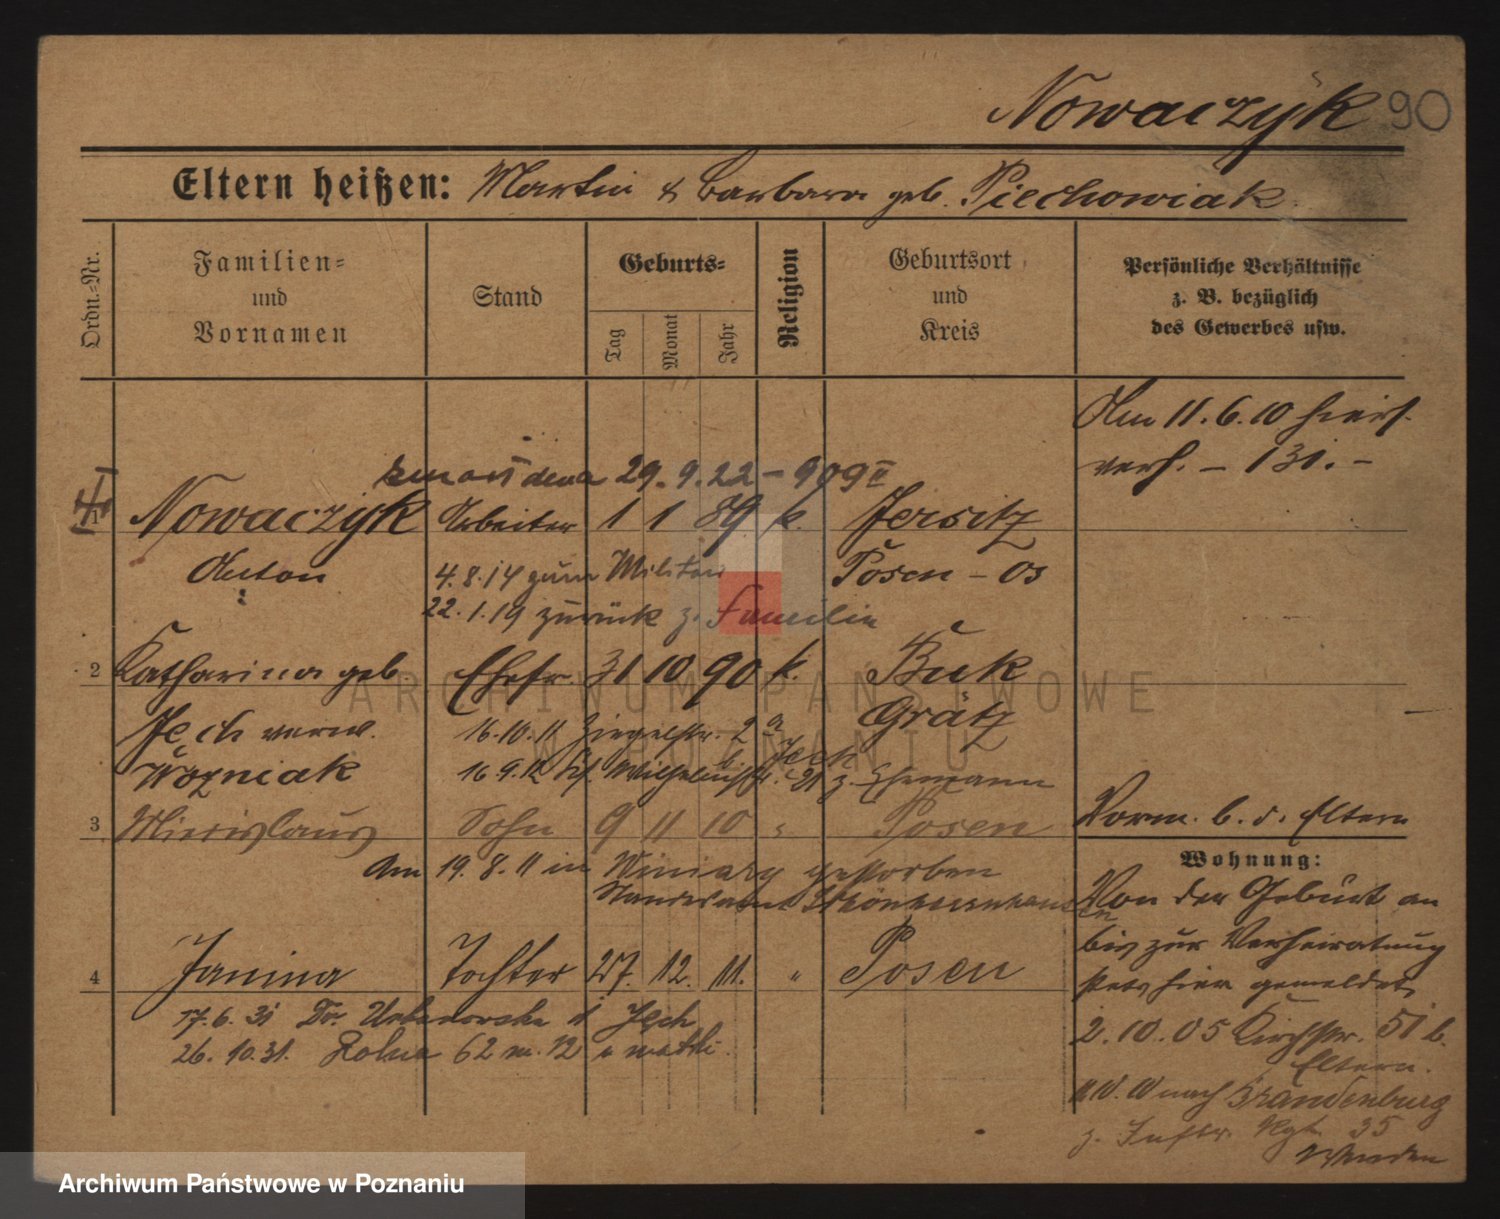 Nowaczyk 90
Eltern heißen: Martin & Barbara geb. Piechowiak.
Ordn.-Nr.
Familien-
und
Vornamen
Stand
Geburts-
Tag
Monat
Jahr
Religion
Geburtsort
und
Kreis
Persönliche Verhältnisse
z. B. bezüglich
des Gewerbes usw.
Am 11.6.10 hiers.
verh. – 131. –
zmarł dnia 29.9.22 – 909 II
1 Nowaczyk Arbeiter 1 1 89 k. Jersitz
Anton 4.8.14 zum Militär Posen – Os
22.1.19 zurück z. Familie
2 Katharina geb Ehefr. 31 10 90 k. Buk
Jech verw. 16.10.11 Ziegelstr. 2a Grätz
Woźniak 16 9.12 Wilhelmstr. 21 z. Ehemann
b. Jech
3 Mieczislaus Sohn 9 11 10 " Posen
Vorm. b. d. Eltern
Am 19.8.11 in Winiary gestorben
Standesamt
Wohnung:
Von der Geburt an
bis zur Verheiratung
stets hier gemeldet
4 Janina Tochter 27. 12. 11. " Posen
17.6.31 Dr. Urbanowska Jech
26.10.31. Rolna 62 m. 12 u matki.
2.10.05 Kirchstr. 51 b.
Eltern.
nach Brandenburg
z. Inftr. Rgt. 35
ARCHIWUM PAŃSTWOWE
W POZNANIU
Archiwum Państwowe w Poznaniu